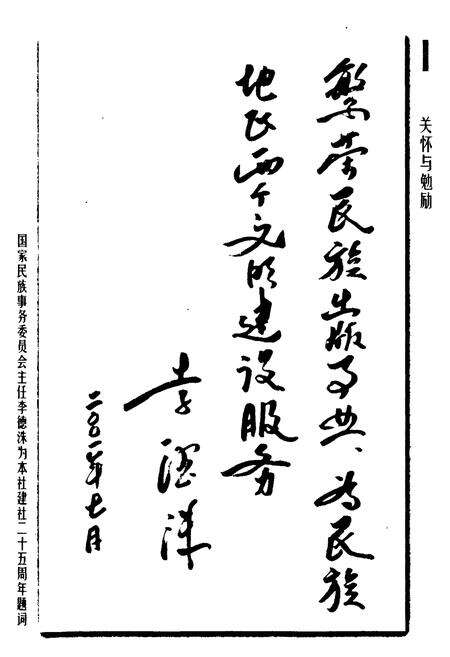 关怀与勉励
繁荣民族出版事业、为民族
地区两个文明建设服务
李德洙
二〇〇一年七月
国家民族事务委员会主任李德洙为本社建社二十五周年题词